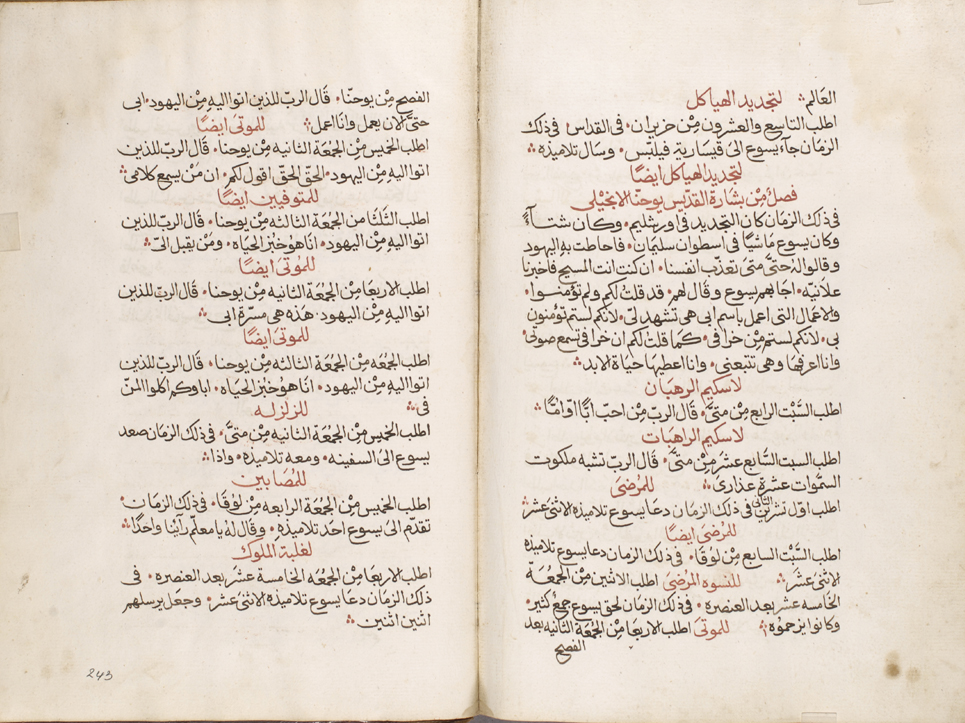 العالم܀ لتجديد الهياكل
اطلب التاسع والعشرون مِنْ حزيران • فى القداس فى ذلك
الزمان جآء يسوع الى قيسارية فيلبّس • وسال تلاميذه ܀
لتجديد الهياكل ايضًا
فصلٌ مِنْ بشارة القدّيس يوحنّا الانجيلى
فى ذلك الزمان كان التجديد فى اورشليم • وكان شتآءً
وكان يسوع ماشيًا فى اسطوان سليمان • فاحاطت بهِ اليهود
وقالوا لهُ حتَّى متى تعذّب انفسنا • ان كنت انت المسيح فاخبرنا
علانيّه • اجابهم يسوع وقال لهم • قد قلتُ لكم ولم تؤمنوا •
والاعمال التى اعمل باسم ابى هى تشهد لى • لانكم لستم تؤمنون
بى • لانكم لستم مِنْ خرافى • كمَا قلتُ لكم ان خرافى تسمع صوتى
وانا اعرفها وهى تتبعنى • وانا اعطيها حياة الابد ܀
لاسكيم الرهبان
اطلب السَّبْت الرابع مِنْ متىَّ • قال الربّ مِنْ احبّ ابًا او امًّا ܀
لاسكيم الراهبات
اطلب السبت السَّابع عشر مِنْ متىَّ • قال الربّ تشبه ملكوت
السَّموات عشرة عذارى ܀ للمرضَى
اطلب اوّل تشرين الثَّانى فى ذلك الزمان دعا يسوع تلاميذه الاثنَى عشَر ܀
للمرضَى ايضًا
اطلب السَّبْت السابع مِنْ لوُقا • فى ذلك الزمان دعا يسوع تلاميذه
الاثنَى عشَر ܀ للنسوه المرضَى اطلب الاثنين مِنْ الجمُعَة
الخامسه عشر بعد العنصره • فى ذلك الزمان لحق يسوع جمعٌ كثيرٌ •
وكانوا يزحموُه ܀ للموتَى اطلب الاربعا مِنْ الجمُعَة الثانيه بعد
الفصح
الفصح مِنْ يوحنّا • قال الربّ للذين اتوا اليهِ مِنْ اليهود • ابى
حتَّى الان يعمل وانا اعمل ܀ للموتَى ايضًا
اطلب الخميس مِنْ الجمُعَة الثانيه مِنْ يوحنا • قال الربّ للذين
اتوا اليهِ مِنْ اليهود • الحقّ الحقّ اقول لكم • ان مَنْ يسمع كلامى ܀
للمتوفين ايضًا
اطلب الثلثا من الجمُعَة الثالثه مِنْ يوحنا • قال الربّ للذين
اتوا اليهِ مِنْ اليهود • انا هوُ خبز الحيَاه • ومَنْ يقبل الىّ ܀
للموُتَى ايضًا
اطلب الاربعا مِن الجمُعَة الثانيه مِنْ يوحنا • قال الربّ للذين
اتوا اليهِ مِنْ اليهود • هذه هى مسرّة ابى ܀
للموتىَ ايضًا
اطلب الجمُعه مِنْ الجمُعَة الثالثه مِنْ يوحنا • قال الربّ للذين
اتوا اليهِ مِنْ اليهود • انا هوُ خبز الحيَاه • اباوكم اكلوا المنّ
فى ܀ للزلزله
اطلب الخميس مِن الجمُعَة الثانيه مِنْ متىَّ • فى ذلك الزمان صعد
يسوع الىَ السفينه • ومعه تلاميذه • واذا ܀
للمصَابين
اطلب الخميس مِن الجمُعَة الرابعه مِنْ لوُقا • فى ذلك الزمان •
تقدّم الىَ يسوع احَد تلاميذهِ • وقال لهُ يا معلّم رآيْنا واحدًا ܀
لغلبة الملوك
اطلب الاربعا مِن الجمُعَة الخامسة عشَر بعد العنصره • فى
ذلك الزمان دعَا يسوع تلاميذه الاثنَى عشر • وجعل يرسلهم
اثنين اثنين ܀
243